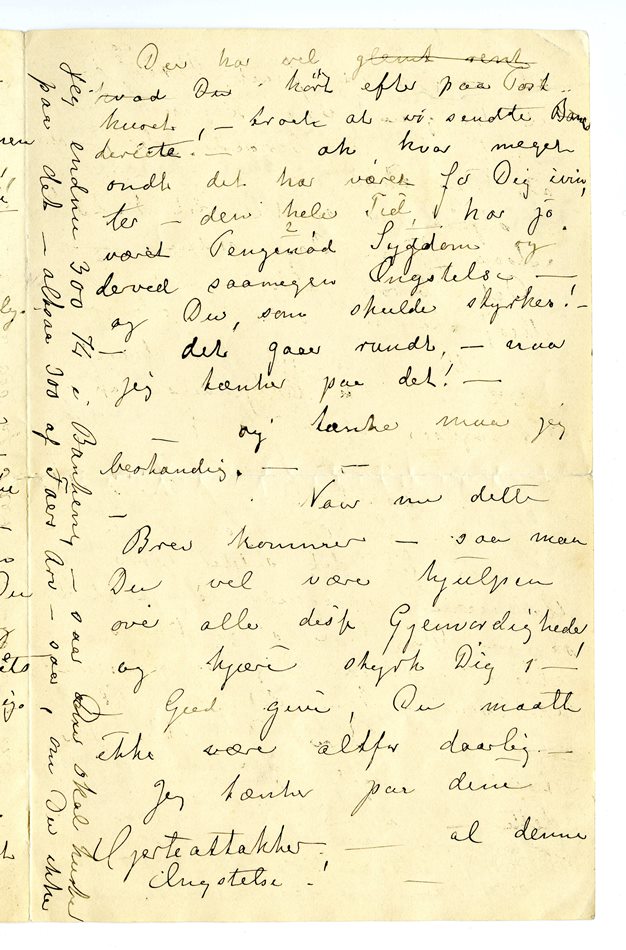 Du har vel glemt rent
hvad Du hört efter paa Post-
huset, – troet at vi sendte
derécte. – ak hvor meget
ondt det har været for Dig i vin
ter – den hele Tid, har jo
været Pengenød 2 Sygdom og
derved saamegen Ængstelse –
og Du, som skulde styrkes! –
– det gaar rundt, – naar
jeg tænker paa det! –
– og tænke maa jeg
bestandig. – –
– Naar nu dette
Brev kommer – saa maa
Du vel være hjulpen
over alle disse Gjenvordigheder
og kjære styrk Dig, – !
Gud give, Du maatte
ikke være altfor daarlig. –
Jeg tænker paa dine
Hjerteattakker. – al denne
Ængstelse! –
jeg endnu 300 Kr i Bankeny – saa Du skal huske
paa det – altsaa 300 af Faers Arv – saa, om Du ikke